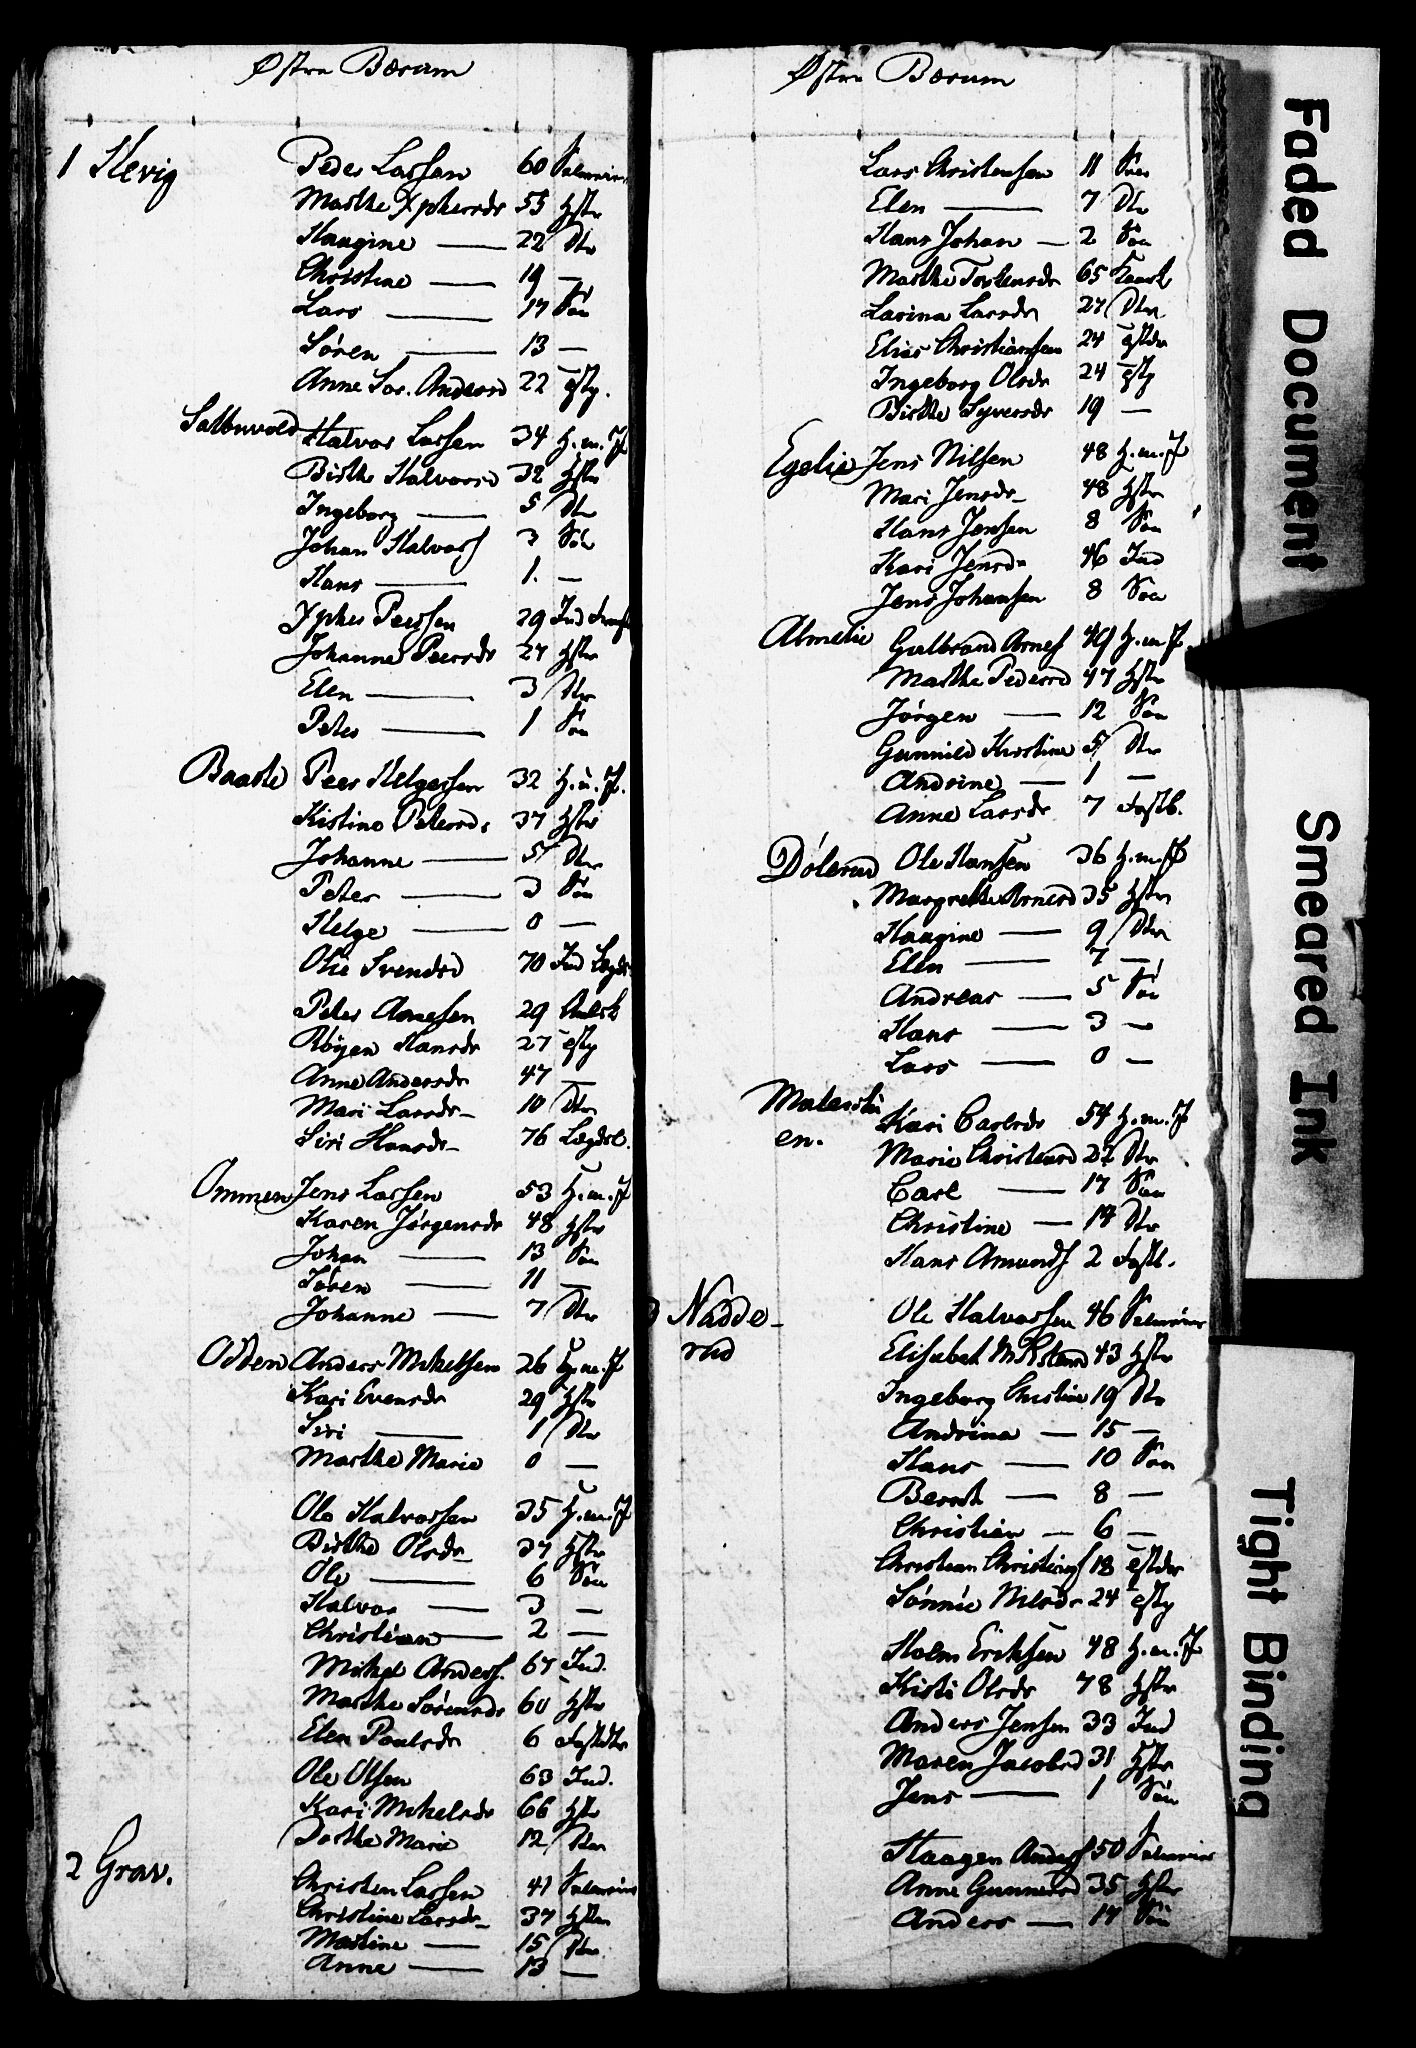 Østre Bærum
1 Høvig Peder Larsen 60 Selveier
Marthe Xphersdr 55 Hstr
Haagine — 22 Dtr
Christine — 19 —
Lars — 17 Søn
Søren — 13 —
Anne Sor. Andersd 22 Tjstp.
Halvor Larsen 34 H.m.J
Birthe Halvorsd 32 Hstr
Ingeborg — 5 Dtr
Johan Halvors 3 Søn
Hans — 1. —
Xpher Peersen 29 Ind
Johanne Peersdr 27 Hstr
Elen — 3 Dtr
Peter — 1 Søn
Peer Helgesen 32 H.m.J.
Kistine Petersdr 37 Hstr
Johanne — 5 Dtr
Peter — 3 Søn
Helge — 0 —
Olie Svendsd 70 Ind Lægds
Peter Arnesen 29
Røyen Hansdr 27 Tjstp
Anne Andersdr 47 —
Mari Larsdr 10 Dtr
Siri Hansdr 76 Lægdsl.
Ommen Jens Larsen 53 H.m.J
Karen Jørgensdr 48 Hstr
Johan — 13 Søn
Søren — 11 —
Johanne — 7 Dtr
Odden Anders Mikelsen 26 H.m.J
Kari Evensdr 29 Hstr
Siri — 1 Dtr
Marthe Marie 0 —
Ole Halvorsen 35 H.m.J
Birthe Olsdr 37 Hstr
Ole — 6 Søn
Halvor — 3 —
Christian — 2 —
Mikel Anders. 67 Ind.
Marthe Sørensdr 60 Hstr
Elen Paulsdr 6 Fostdtr
Ole Olsen 63 Ind.
Kari Mikelsdr 66 Hstr
Dorthe Marie 12 Dtr
2 Grav. Christen Larsen 41 Selveier
Christine Larsdr 37 Hstr
Martine — 15 Dtr
Anne — 13 —
Østre Bærum
Lars Christensen 11 Søn
Elen — 7 Dtr
Hans Johan — 2 Søn
Marthe Torstensdr 65
Larina Larsdr 27 Dtr
Elias Christiansen 24 Tjstdr
Ingeborg Olsdr 24 Tjstp
Birthe Syversdr 19 —
Egelie Jens Nilsen 48 H.m.J
Mari Jensdr 48 Hstr
Hans Jensen 8 Søn
Kari Jensdr 46 Ind
Jens Johansen 8 Søn
Almelie Gulbrand Arnes 49 H.m.J
Marthe Pedersd 47 Hstr
Jørgen — 12 Søn
Gunnild Kirstine 5 Dtr
Andrine — 1 —
Anne Larsdr 7 Fostb.
Dølerud Ole Hansen 36 H.m.J
Margrethe Arnesd 35 Hstr
Haagine — 9 Dtr
Elen — 7 —
Andreas — 5 Søn
Hans — 3 —
Lars — 0 —
en. Kari Carlsdr 54 H.m.J
Marie Christensd 22 Dtr
Carl — 17 Søn
Christine — 14 Dtr
Hans Amunds 2 Fostb.
Nadde-
rud
Ole Halvorsen 46 Selveier
Elisabeth 43 Hstr
Ingeborg Christine 19 Dtr
Andrina — 15 —
Hans — 10 Søn
Bernt — 8 —
Christian — 6 —
Christian Christians 18 Tjstdr
Sønnie Nilsdr 24 Tjstp
Holm Eriksen 48 H.m.J
Kisti Olsdr 78 Hstr
Anders Jensen 33 Ind
Maren Jacobsd 31 Hstr
Jens — 1 Søn
Haagen Anders 50 Selveier
Anne Gunnersd 35 Hstr
Anders — 17 Søn
Faded Document
Smeared Ink
Tight Binding